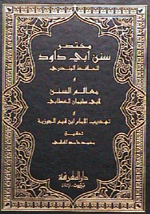 مختصر
سنن أبي داود
للحافظ المنذري
و
معالم السنن
لأبي سليمان الخطابي
و
تهذيب الإمام ابن قيم الجوزية
تحقيق
محمد حامد الفقي
دار المعرفة